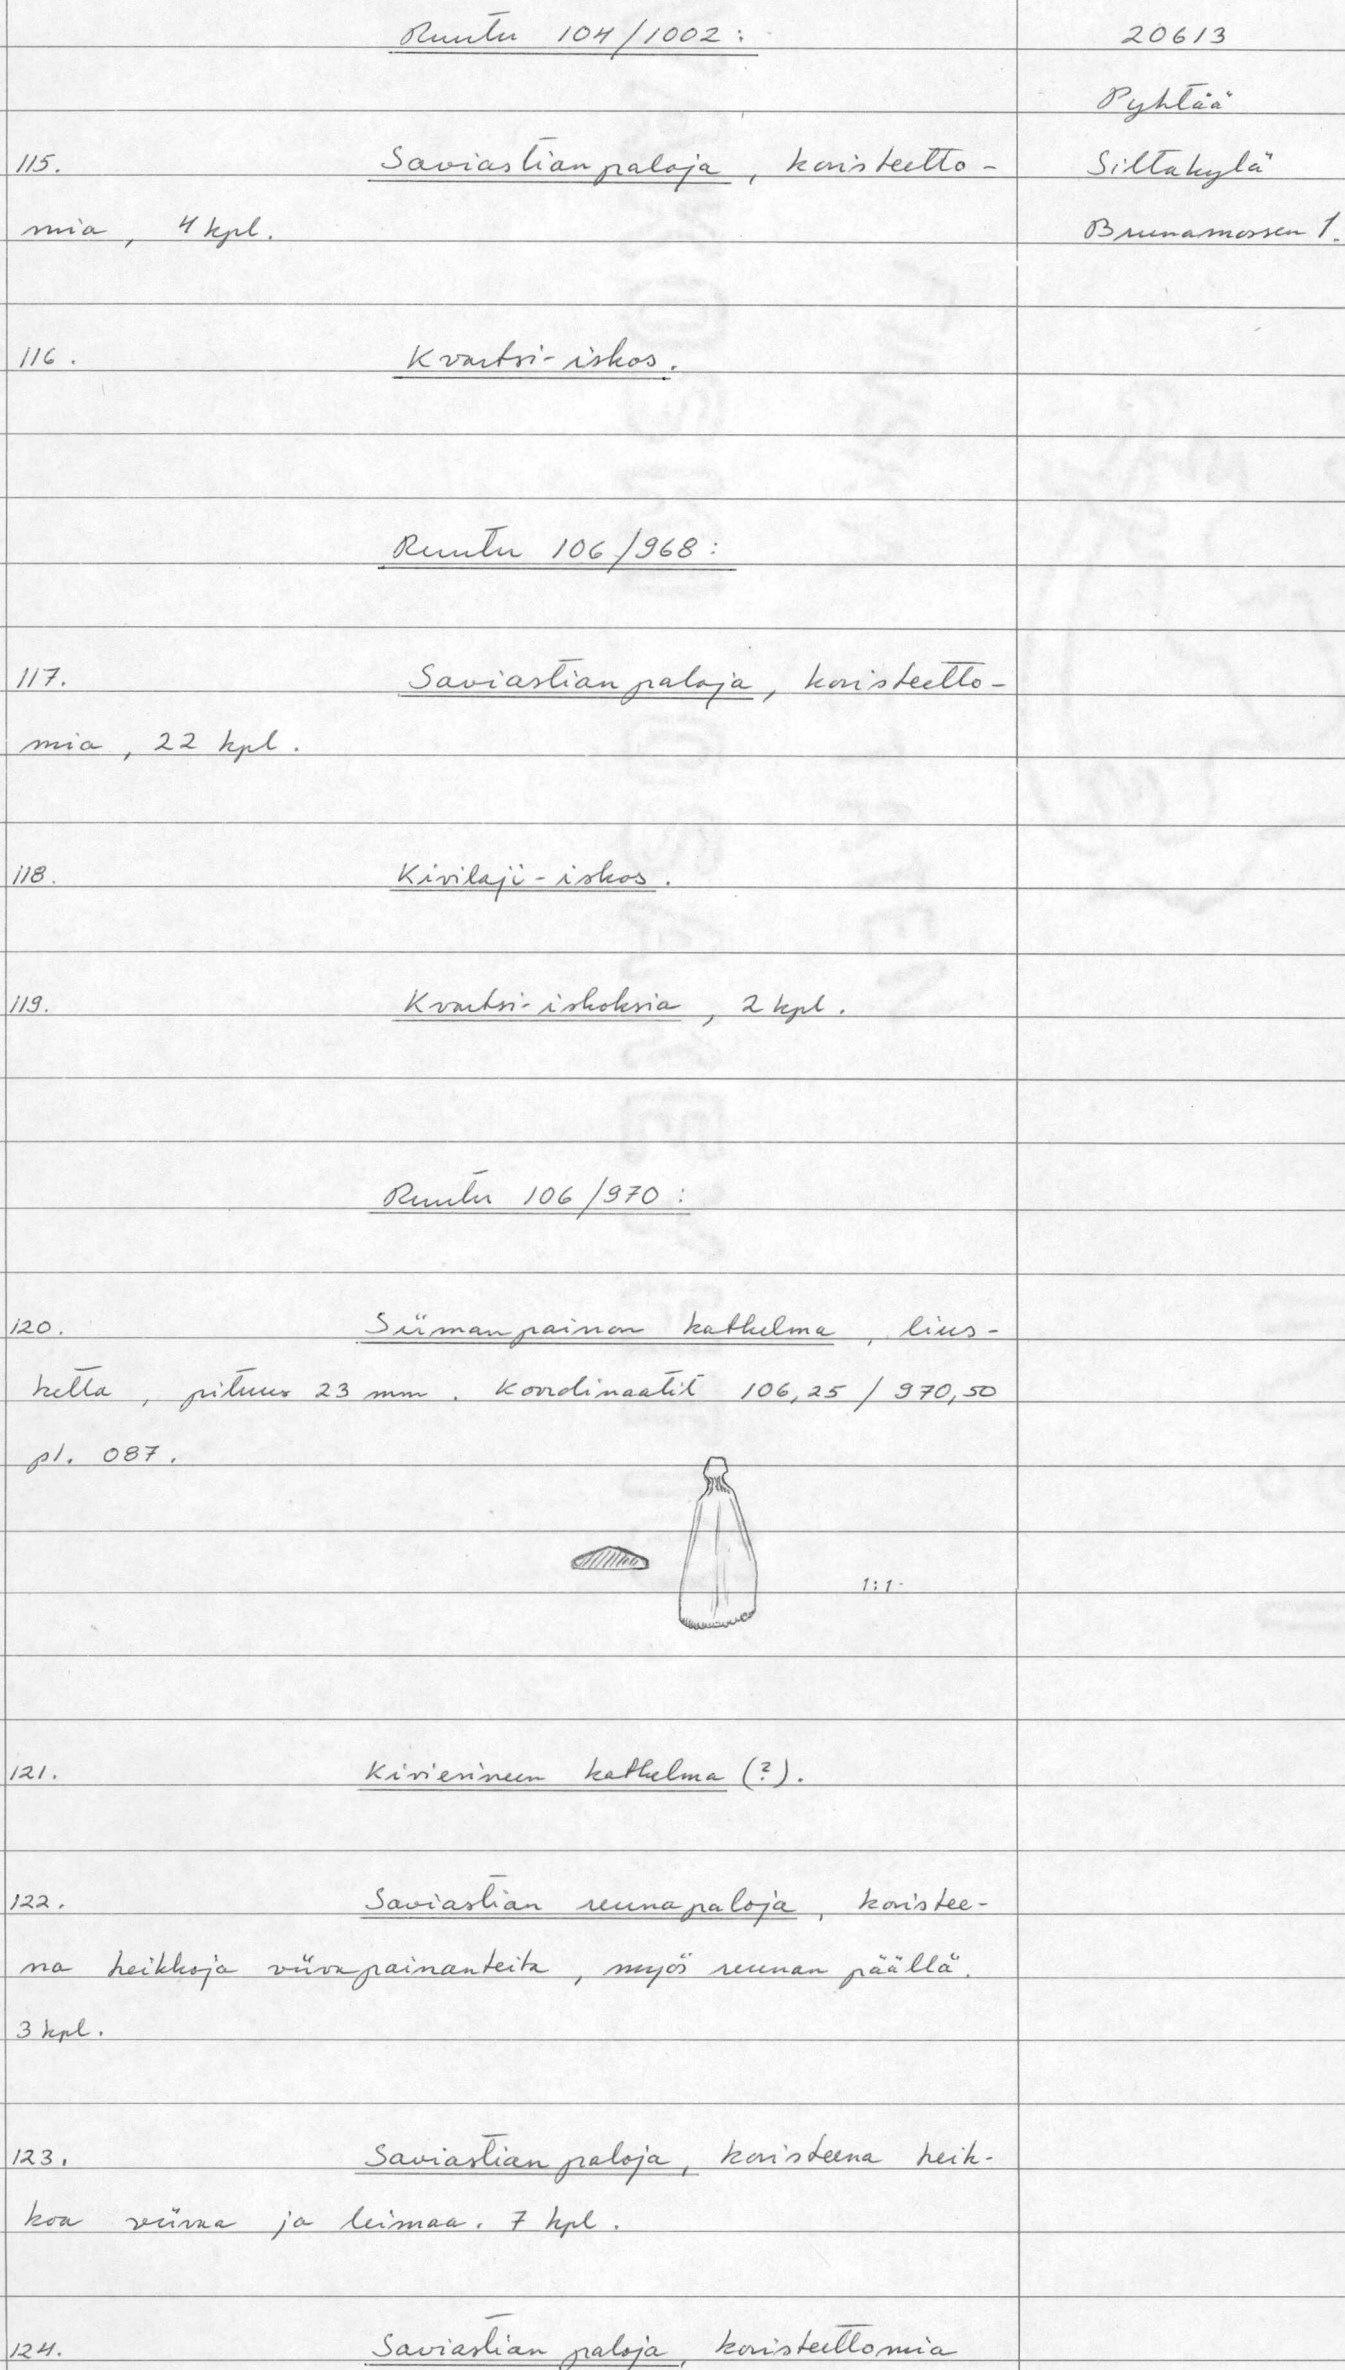 Ruutu 104/1002:
20613
Pyhtää
115. Saviastianpaloja, koristeetto-
Siltakylä
mia, 4 kpl.
Brunamossen 1.
116. Kvartsi-iskos.
Ruutu 106/968:
117. Saviastianpaloja, koristeetto-
mia, 22 kpl.
118. Kivilaji-iskos.
119. Kvartsi-iskoksia, 2 kpl.
Ruutu 106/970:
120. Siimanpainon katkelma, lius-
ketta, pituus 23 mm. Koordinaatit 106,25 / 970,50
pl. 087.
1:1.
121. Kiviesineen katkelma (?).
122. Saviastian reunapaloja, koristee-
na heikkoja viivapainanteita, myös reunan päällä.
3 kpl.
123. Saviastian paloja, koristeena heik-
koa viivaa ja leimaa. 7 kpl.
124. Saviastian paloja, koristeettomia